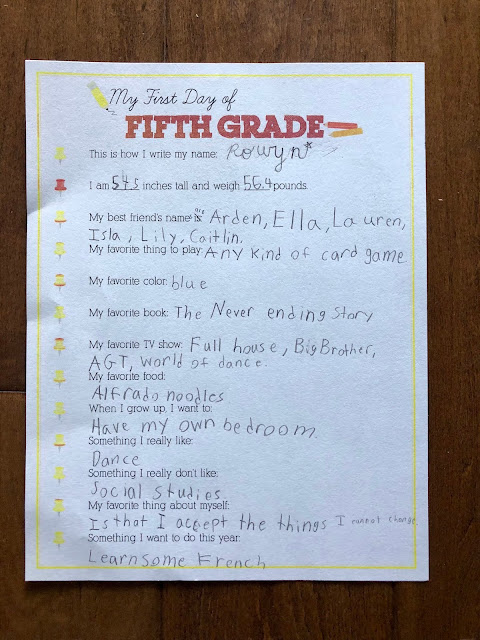 My First Day of
FIFTH GRADE
This is how I write my name: Rowyn*
I am 54.5 inches tall and weigh 56.4 pounds.
My best friend's name is: are Arden, Ella, Lauren,
Isla, Lily, Caitlin.
My favorite thing to play: Any kind of card game
My favorite color: blue
My favorite book: The Never ending Story
My favorite TV show: Full house, Big Brother,
AGT, world of dance.
My favorite food:
Alfrado noodles
When I grow up, I want to:
Have my own bedroom.
Something I really like:
Dance
Something I really don't like:
Social studies
My favorite thing about myself:
Is that I accept the things I cannot change
Something I want to do this year:
Learn some French